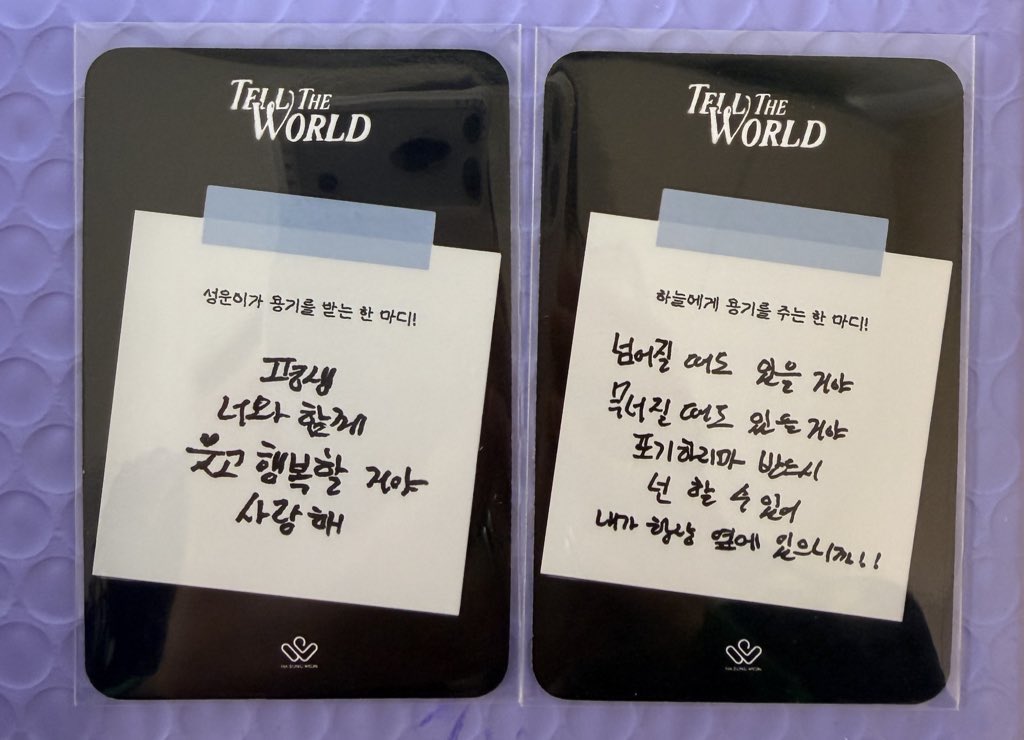 TELL THE
WORLD
성운이가 용기를 받는 한 마디!
평생
너와 함께
웃고 행복할 거야
사랑해
HA SUNG WOON
TELL THE
WORLD
하늘에게 용기를 주는 한 마디!
넘어질 때도 있을 거야
무너질 때도 있을 거야
포기하지마 반드시
넌 할 수 있어
내가 항상 옆에 있으니까!!
HA SUNG WOON